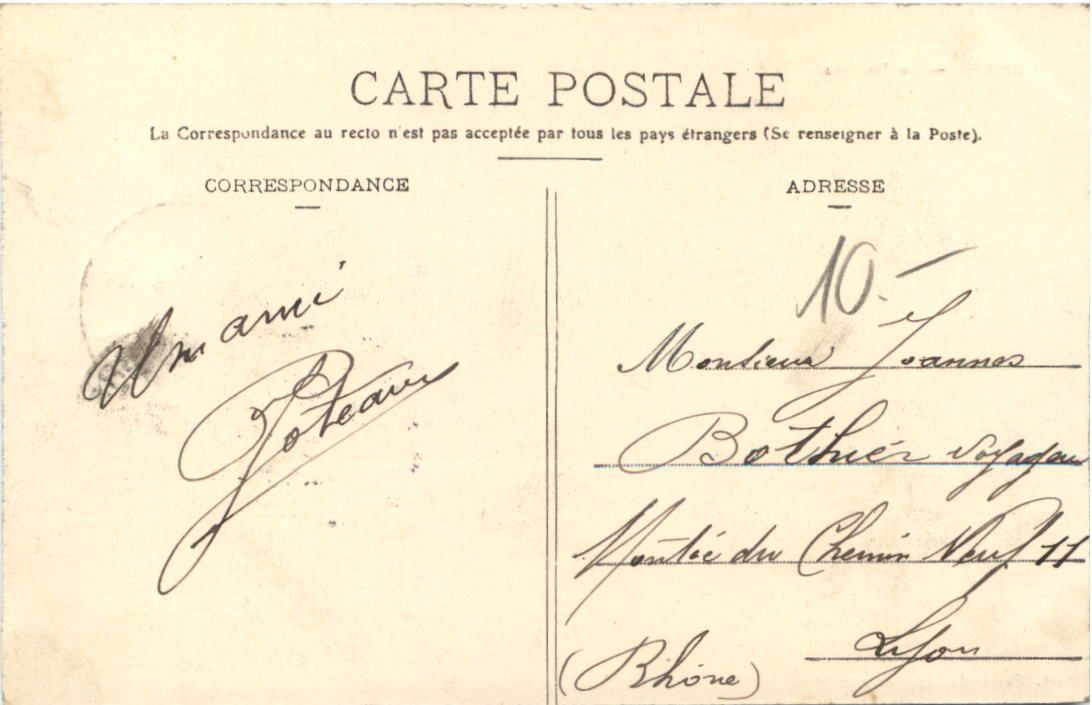 CARTE POSTALE
La Correspondance au recto n'est pas acceptée par tous les pays étrangers (Se renseigner à la Poste).
CORRESPONDANCE
Un ami
Poteau
ADRESSE
10.-
Monsieur Joannes
Bothier voyageur
Montée du Chemin Neuf 11
Lyon
(Rhône)